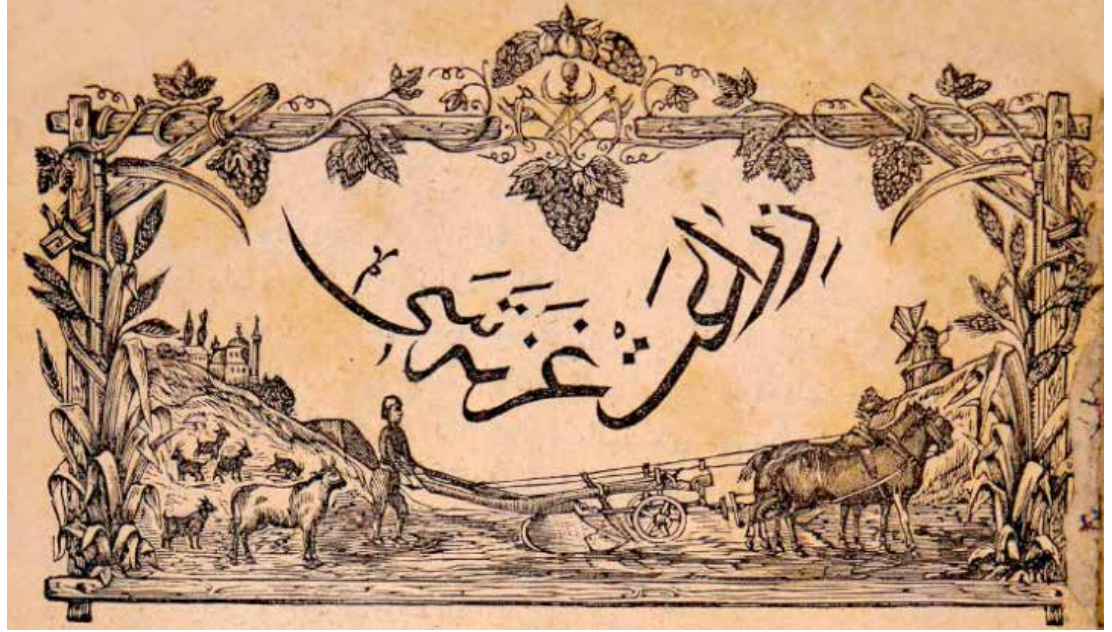 زراعت غزته‌سی